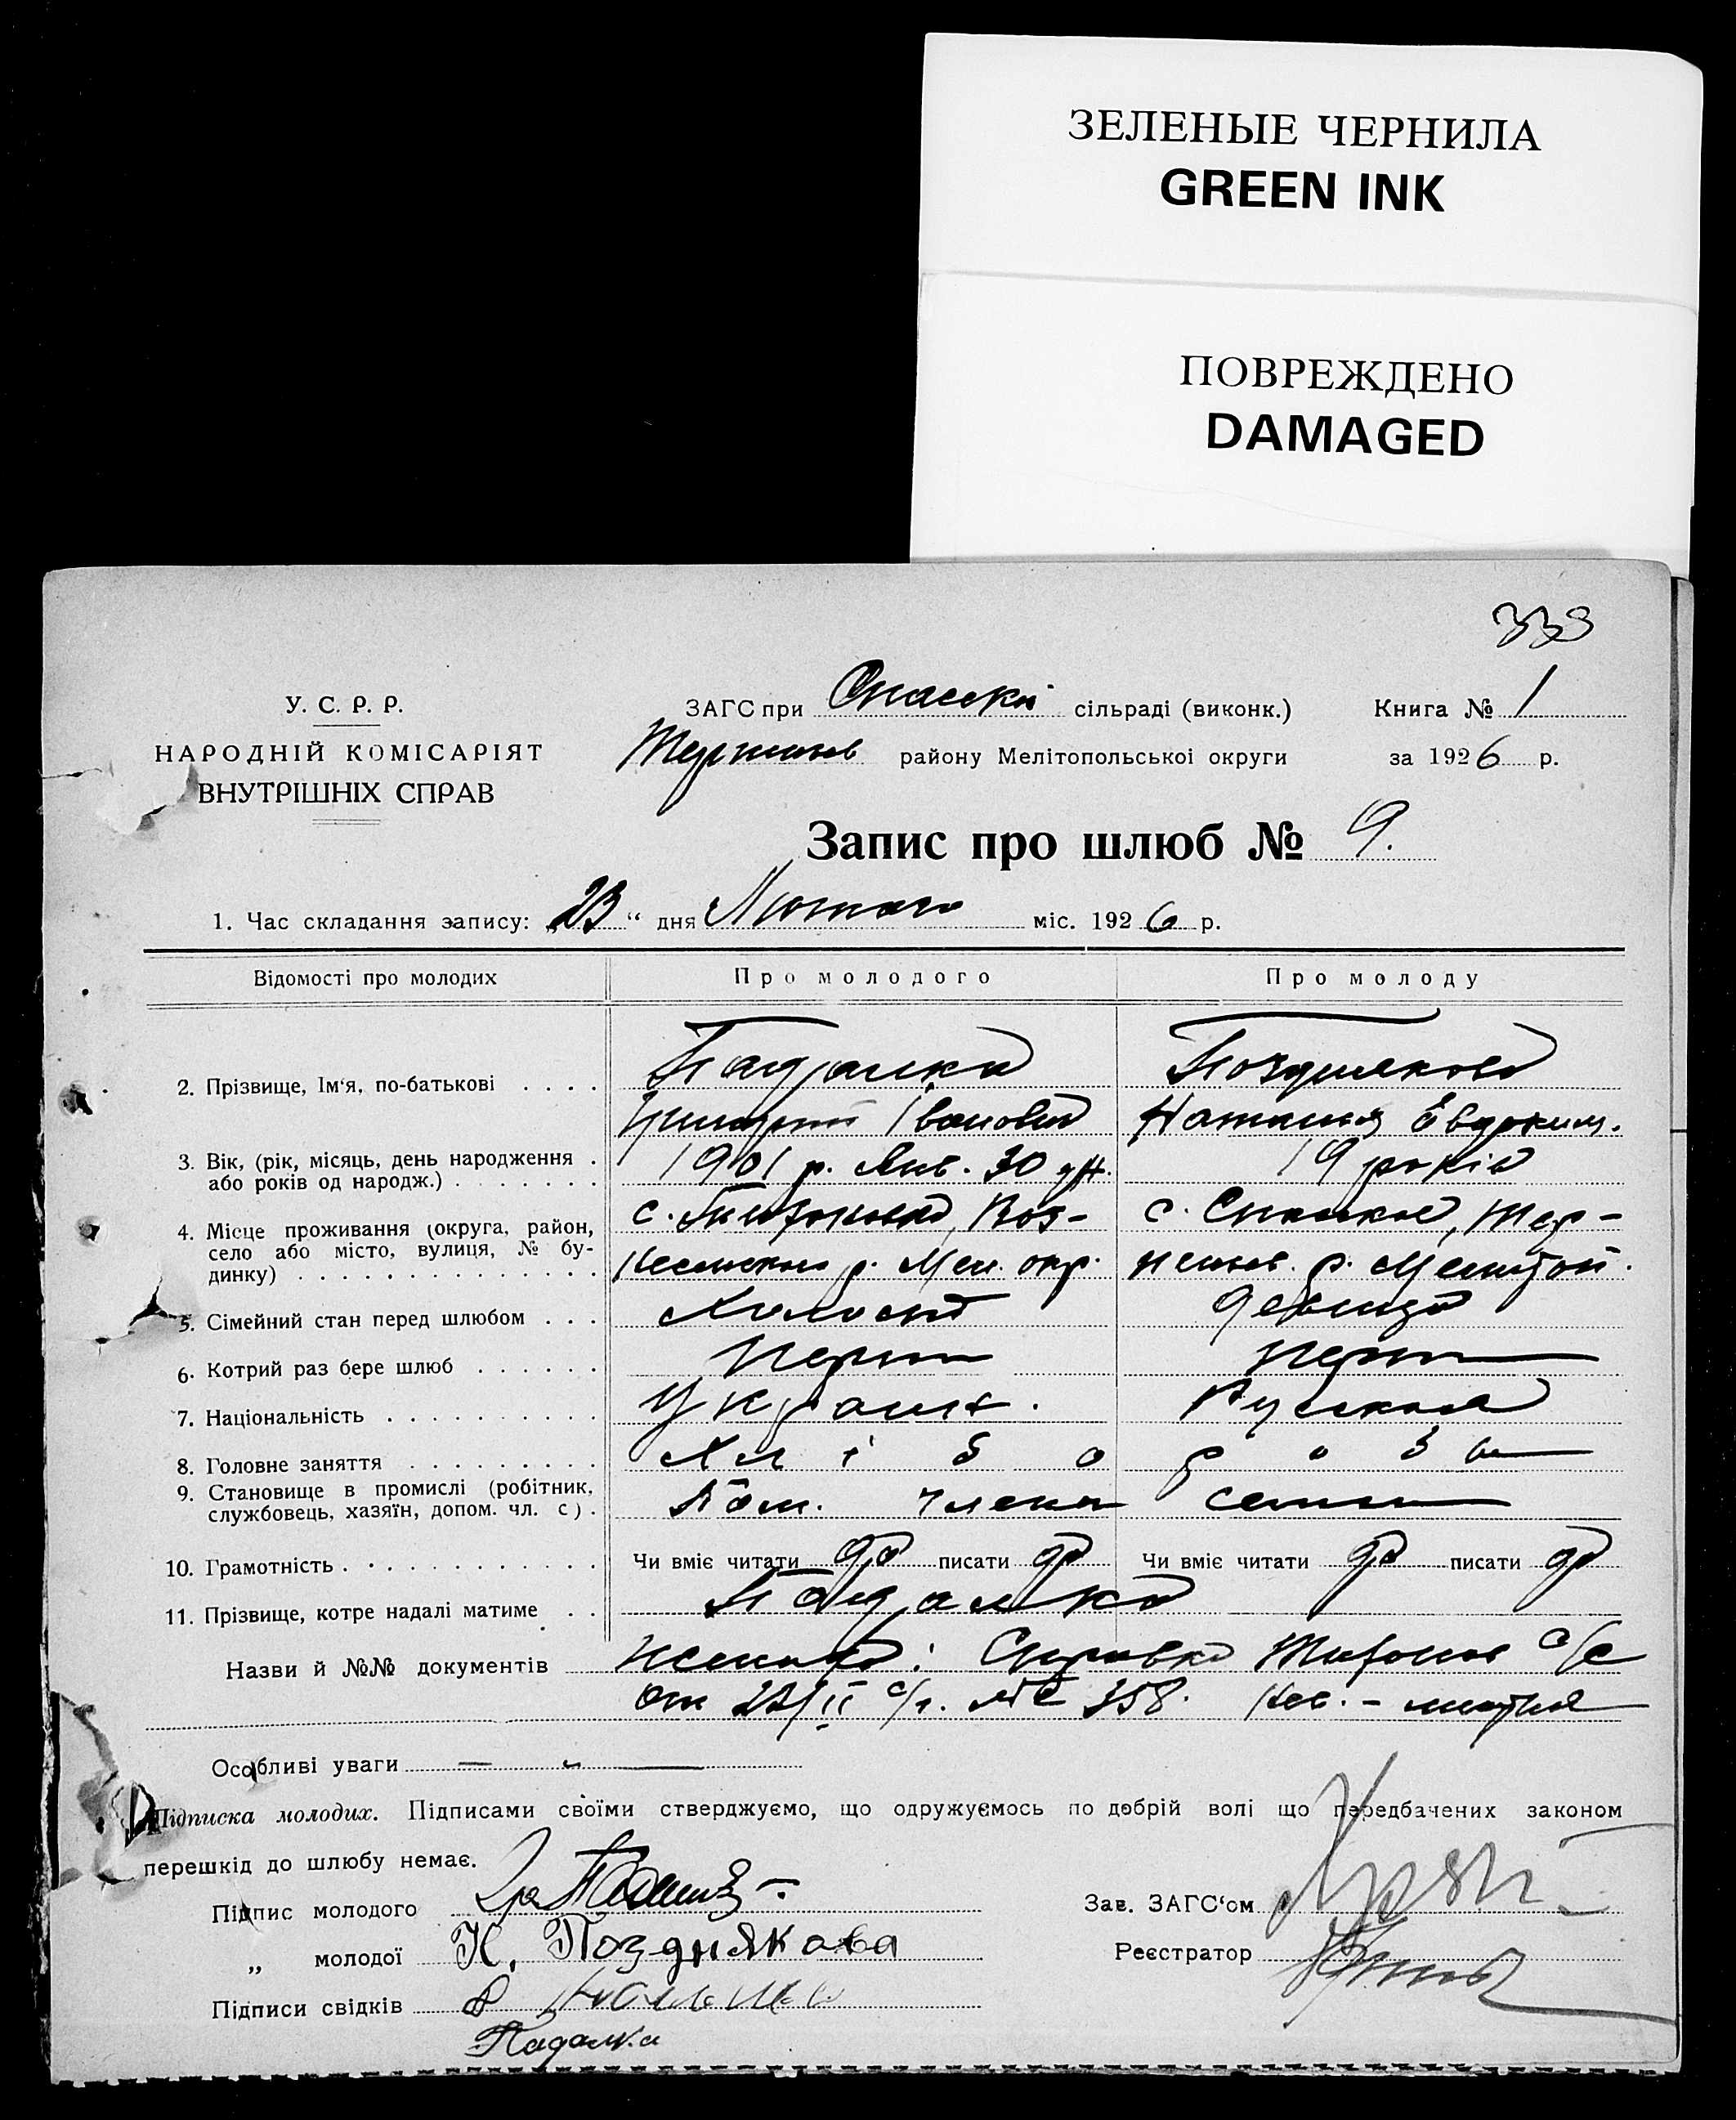 ЗЕЛЕНЫЕ ЧЕРНИЛА
GREEN INK
ПОВРЕЖДЕНО
DAMAGED
333
У. С. Р. Р.
НАРОДНІЙ КОМІСАРІЯТ
ВНУТРІШНІХ СПРАВ
ЗАГС при Спаській сільраді (виконк.) Книга № 1
району Мелітопольської округи за 1926 р.
Запис про шлюб № 9.
1. Час складання запису: „23“ дня Лютого міс. 1926 р.
Відомості про молодих Про молодого Про молоду
2. Прізвище, Ім‘я, по-батькові . . . . Падалка Позднякова
Григорій Іванович Наталия Евдоким.
3. Вік, (рік, місяць, день народження . або років од народж.) . . . . . . . 1901 р. Янв. 30 дн. 19 років
4. Місце проживання (округа, район, село або місто, вулиця, № будинку) . . . . . . . . . . . . . .
с. Воз- с. Спаское, Тер-
р. Мел. окр. р. Мелітоп.
5. Сімейний стан перед шлюбом . . . Холост девица
6. Котрий раз бере шлюб . . . . . . перш перш
7. Національність . . . . . . . . . . Україн. Руская
8. Головне заняття . . . . . . . . . Хлібороби
9. Становище в промислі (робітник, службовець, хазяїн, допом. чл. с) . члени семьи
10. Грамотність . . . . . . . . . . . . Чи вміє читати да писати да Чи вміє читати да писати да
11. Прізвище, котре надалі матиме . . Падалка
Назви й №№ документів Справка с/с
От 22/II с/г. № 358.
Особливі уваги — „ —
Підписка молодих. Підписами своїми стверджуємо, що одружуємось по добрій волі що передбачених законом
перешкід до шлюбу немає.
Підпис молодого Зав. ЗАГС‘ом
„ молодої Н. Позднякова Реєстратор
Підписи свідків
Падалка